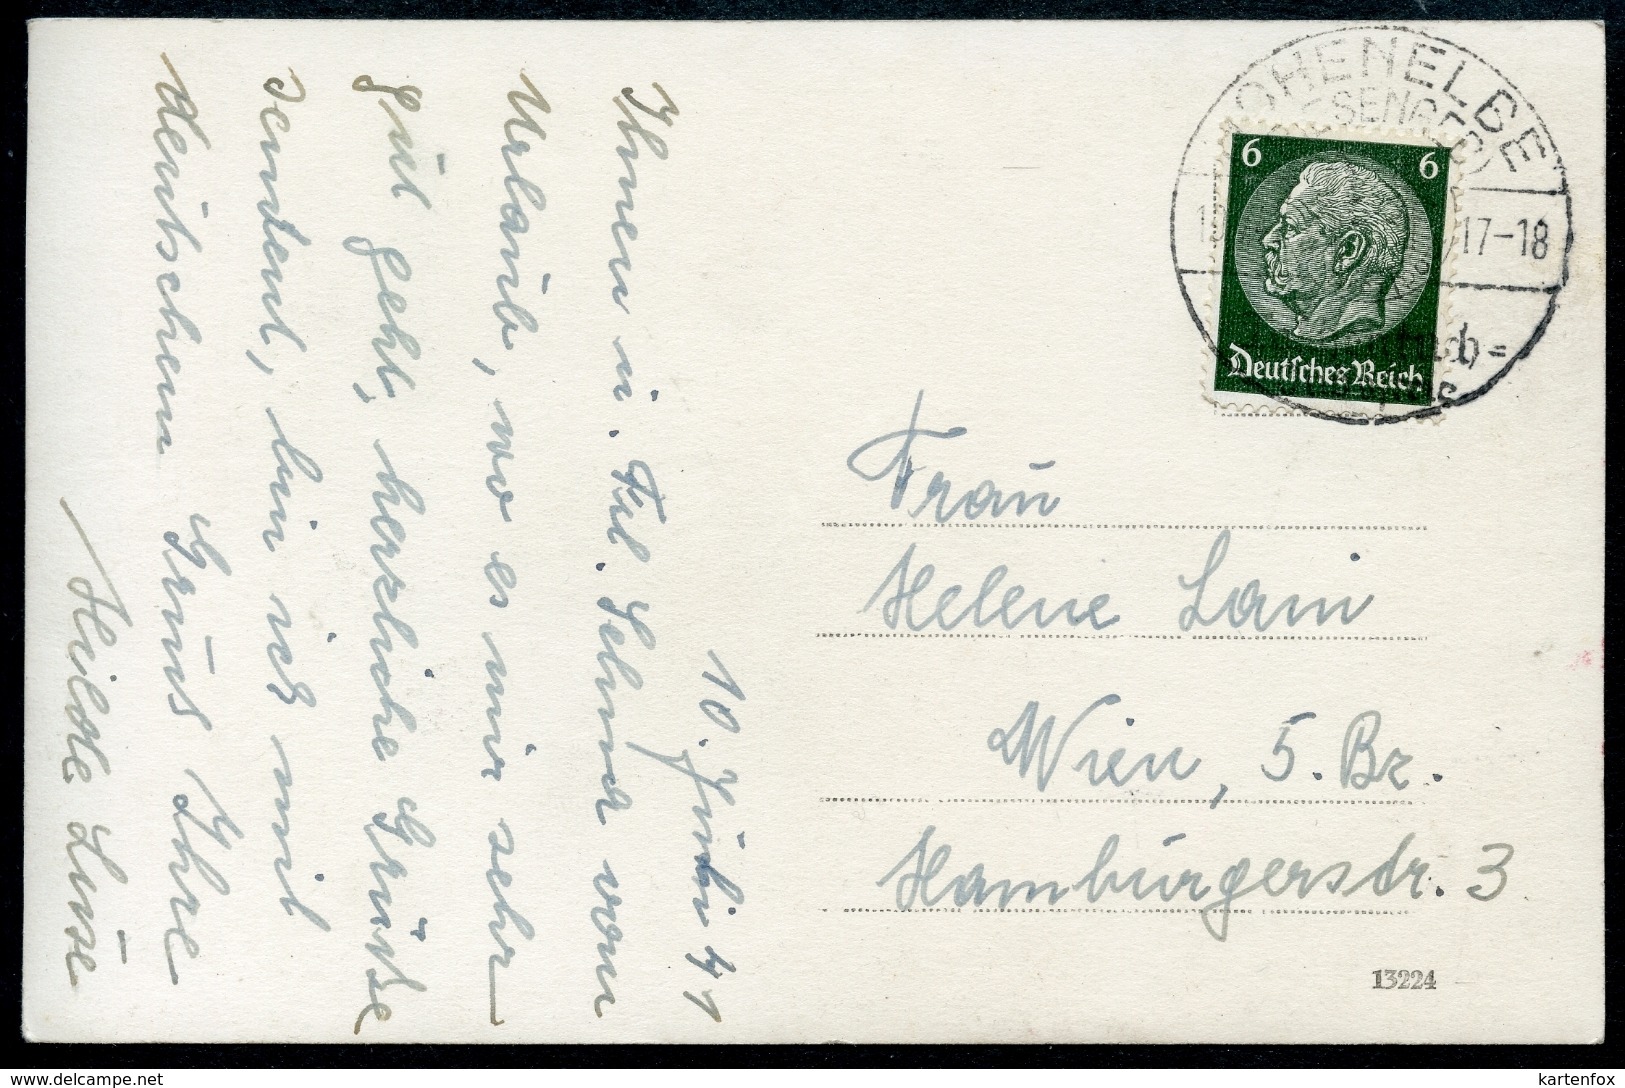 10. Juli 41
Ihnen u. Frl. Selma vom
Urlaub, wo es mir sehr
gut geht, herzliche Grüße
sendend, bin ich mit
deutschem Gruß Ihre
Hilde
HOHENELBE
17-18
6 6
Deutsches Reich
Frau
Helene
Wien, 5. Bz.
Hamburgerstr. 3
13224
delcampe.net
kartenfox